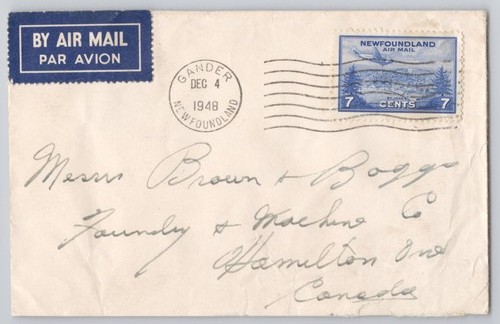 BY AIR MAIL
PAR AVION
GANDER
DEC 4
1948
NEWFOUNDLAND
NEWFOUNDLAND
AIR MAIL
7 CENTS 7
Messrs Brown & Boggs
Foundry & Machine Co
Hamilton Ont
Canada